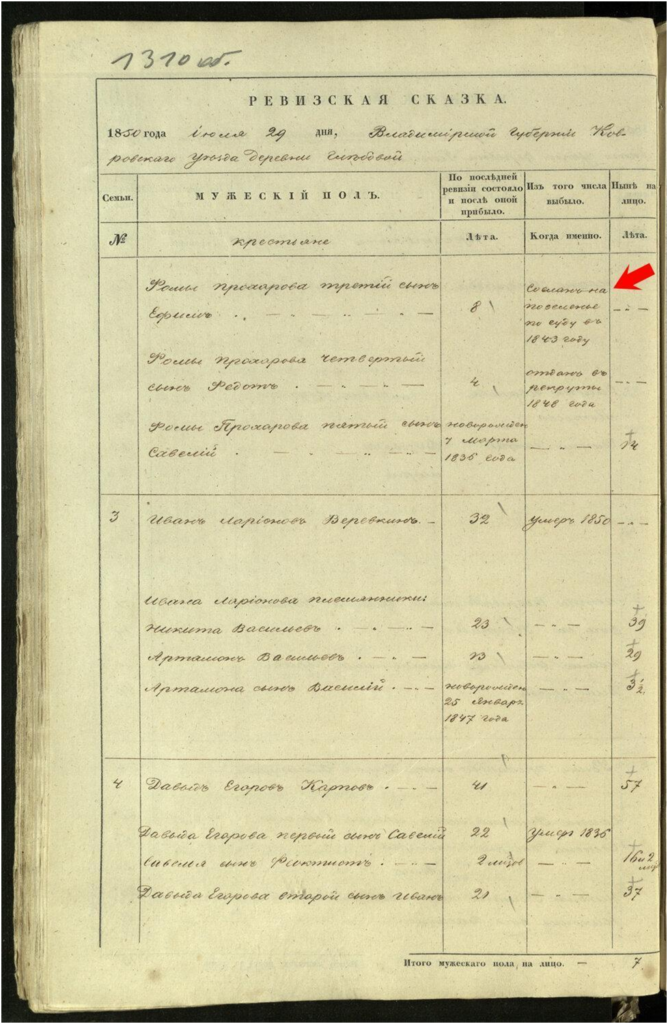 1310 об.
РЕВИЗСКАЯ СКАЗКА.
1850 года июля 29 дня, Владимірской Губерніи Ков-
ровскаго уезда Деревни
Семьи.
МУЖЕСКІЙ ПОЛЪ.
По последней ревизіи состояло и после оной прибыло.
Изъ того числа выбыло.
Ныне на лицо.
№
крестьяне
Лета.
Когда именно.
Лета.
Фомы Прохарова третій сынъ
Ефимъ
8
Сосланъ на
поселенье
по суду въ
1843 году
Фомы Прохарова четвертый
сынъ Федотъ
4
отданъ въ
рекруты
1848 года
Фомы Прохарова пятый сынъ
Савелій
новорожден
7 марта
1836 года
14
3
Иванъ Ларіоновъ Веревкинъ
32
умеръ 1850
Ивана Ларіонова племянники:
Никита Васильевъ
23
39
Артамонъ Васильевъ
13
29
Артамона сынъ Василій
новорожден
25 январ
1847 года
3 1/2
4
Давыдъ Егаровъ Карповъ
41
57
Давыда Егарова первый сынъ Савелій
22
умеръ 1836
Савелья сынъ Фиктистъ
16 и 2
Давыда Егарова второй сынъ Иванъ
21
37
Итого мужескаго пола на лицо. — 7